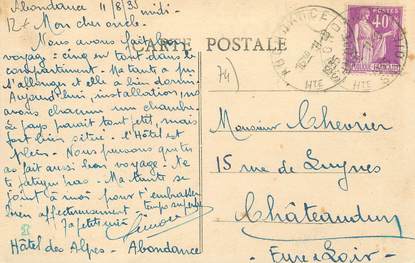 Abondance 11/8/35
midi-
Mon cher oncle.
Nous avons fait bon
voyage : cinq en tout dans le
compartiment. Ma tante a pu
s'allonger et elle a bien dormi.
Aujourd'hui, installation, nous
avons chacun une chambre.
Le pays parait tout petit, mais
fort bien situé. l'Hôtel est
plein. Nous pensons que tu
as fait aussi bon voyage. Ne te
fatigue pas. Ma tante se
joint à moi pour t'embrasser
bien affectueusement temps superbe
Ta petite nièce
Simone
Hôtel des Alpes - Abondance
CARTE POSTALE
74)
ABONDANCE
HTE
40
POSTES
Monsieur Chevrier
15 rue de Luynes
Châteaudun
Eure & Loir.